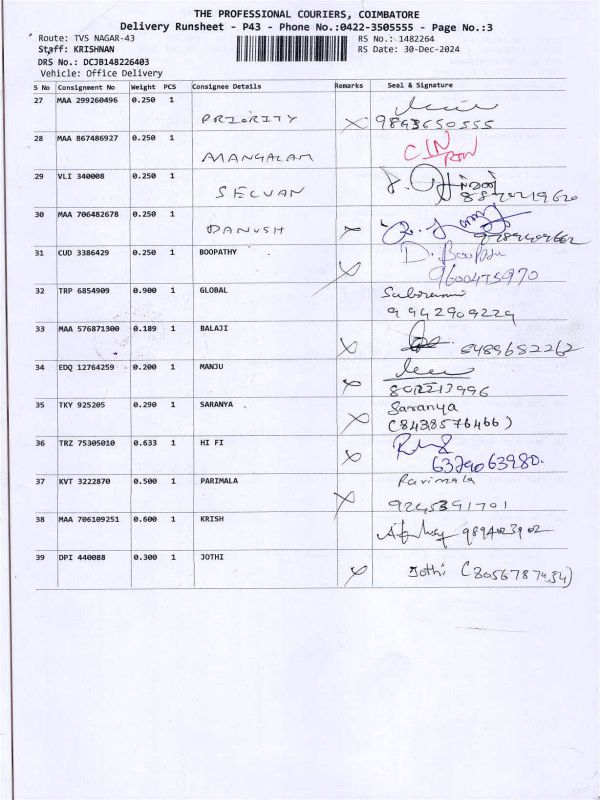 THE PROFESSIONAL COURIERS, COIMBATORE
Delivery Runsheet - P43 - Phone No.:0422-3505555 - Page No.:3
Route: TVS NAGAR-43 RS No.: 1482264
Staff: KRISHNAN RS Date: 30-Dec-2024
DRS No.: DCJB148226403
Vehicle: Office Delivery
S No Consignment No Weight PCS Consignee Details Remarks Seal & Signature
27 MAA 299260496 0.250 1
PRIORITY 9893650555
28 MAA 867486927 0.250 1
MANGALAM
29 VLI 340008 0.250 1
SELVAN 8870219620
30 MAA 706482678 0.250 1
DANUSH
31 CUD 3386429 0.250 1 BOOPATHY
9600475970
32 TRP 6854909 0.900 1 GLOBAL
9942909229
33 MAA 576871300 0.189 1 BALAJI
8489682262
34 EDQ 12764259 0.200 1 MANJU
35 TKY 925205 0.290 1 SARANYA Saranya
(8438576466)
36 TRZ 75305010 0.633 1 HI FI
6379063980.
37 KVT 3222870 0.500 1 PARIMALA Parimala
9245391701
38 MAA 706109251 0.600 1 KRISH
39 DPI 440088 0.300 1 JOTHI
Jothi (8056787434)